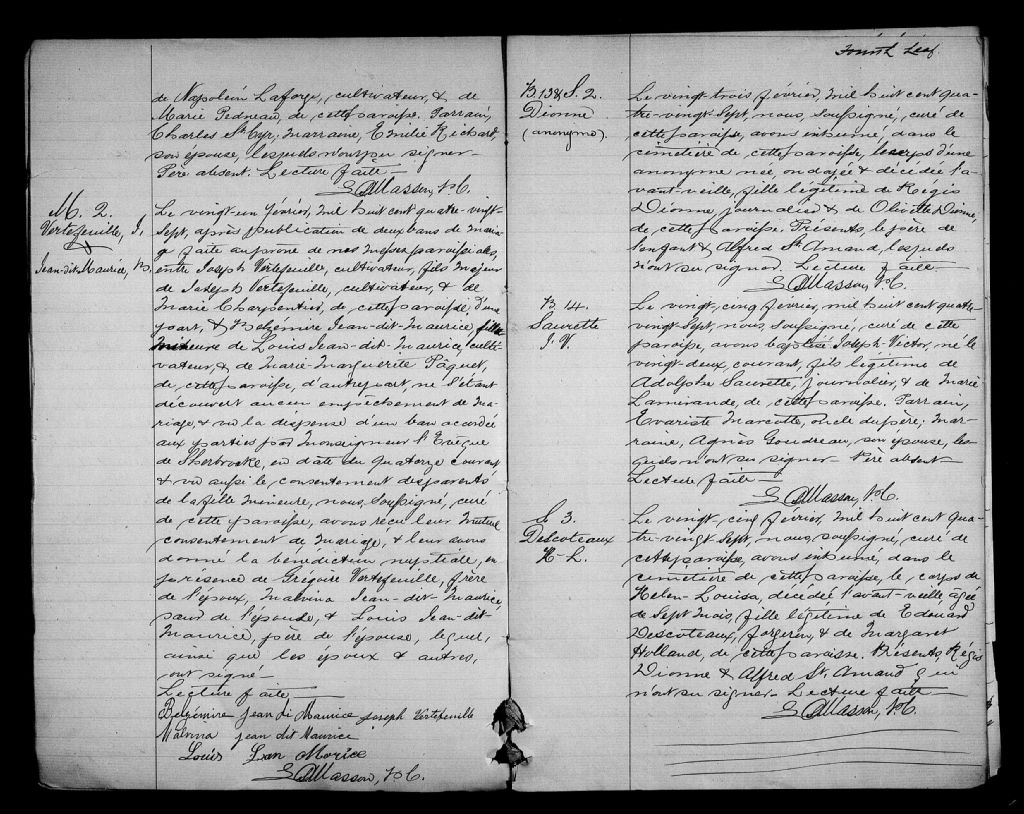 de Napoléon Laforge, cultivateur, & de
Marie Pedneau, de cette paroisse. Parrain,
Charles St Cyr; marraine, Emilie Richard,
son épouse, lesquels n'ont pu signer.
Père absent. Lecture faite
Masson, Ptre.
M. 2.
Vertefeuille, J.
&
Jean-dit-Maurice, B.
Le vingt-un février, mil huit cent quatre-vingt-
sept, après publication de deux bans de maria-
ge faite au prône de nos messes paroissiales,
entre Joseph Vertefeuille, cultivateur, fils majeur
de Joseph Vertefeuille, cultivateur, & de
Marie Charpentier, de cette paroisse, d'une
part, & Belzémire Jean-dit-Maurice, fille
mineure de Louis Jean-dit-Maurice, culti-
vateur, & de Marie-Marguerite Paquet,
de cette paroisse, d'autre part, ne s'étant
découvert aucun empêchement de ma-
riage, & vu la dispense d'un ban accordée
aux parties par Monseigneur l'Evêque
de Sherbrooke, en date du quatorze courant
& vu aussi le consentement des parents
de la fille mineure, nous, soussigné, curé
de cette paroisse, avons reçu leur mutuel
consentement de mariage, & leur avons
donné la bénédiction nuptiale, en
présence de Grégoire Vertefeuille, frère
de l'époux, Malvina Jean-dit-Maurice,
sœur de l'épouse, & Louis Jean-dit-
Maurice, père de l'épouse, lequel,
ainsi que les époux & autres,
ont signé.
Lecture faite
Belzémire Jean di Maurice Joseph Vertefeuille
Malvina Jean dit Maurice
Louis Jean Morice
Masson, Ptre.
Fourth Leaf
B. 13 & S. 2.
Dionne
(anonyme).
Le vingt-trois février, mil huit cent qua-
tre-vingt-sept, nous, soussigné, curé de
cette paroisse, avons inhumé, dans le
cimetière de cette paroisse, le corps d'une
anonyme née, ondoyée & décédée l'a-
vant-veille, fille légitime de Régis
Dionne journalier & de Olivette Dionne,
de cette paroisse. Présents, le père de
l'enfant & Alfred St Amand, lesquels
n'ont su signer. Lecture faite
Masson, Ptre.
B. 14.
Saurette
J. V.
Le vingt-cinq février, mil huit cent quatre-
vingt-sept, nous, soussigné, curé de cette
paroisse, avons baptisé Joseph Victor, né le
vingt-deux, courant, fils légitime de
Adolphe Saurette, journalier, & de Marie
Lamirande, de cette paroisse. Parrain,
Evariste Marcotte, oncle du père; mar-
raine, Agnès Goudreau, son épouse, les-
quels n'ont su signer. Père absent
Lecture faite
Masson, Ptre.
S. 3.
Descoteaux
H-L.
Le vingt-cinq février, mil huit cent qua-
tre-vingt sept, nous, soussigné, curé de
cette paroisse, avons inhumé, dans le
cimetière de cette paroisse, le corps de
Helen-Louisa, décédée l'avant-veille, âgée
de sept mois, fille légitime de Edouard
Descoteaux, forgeron, & de Margaret
Holland, de cette paroisse. Présents, Régis
Dionne & Alfred St. Amand, qui
n'ont su signer. Lecture faite
Masson, Ptre.